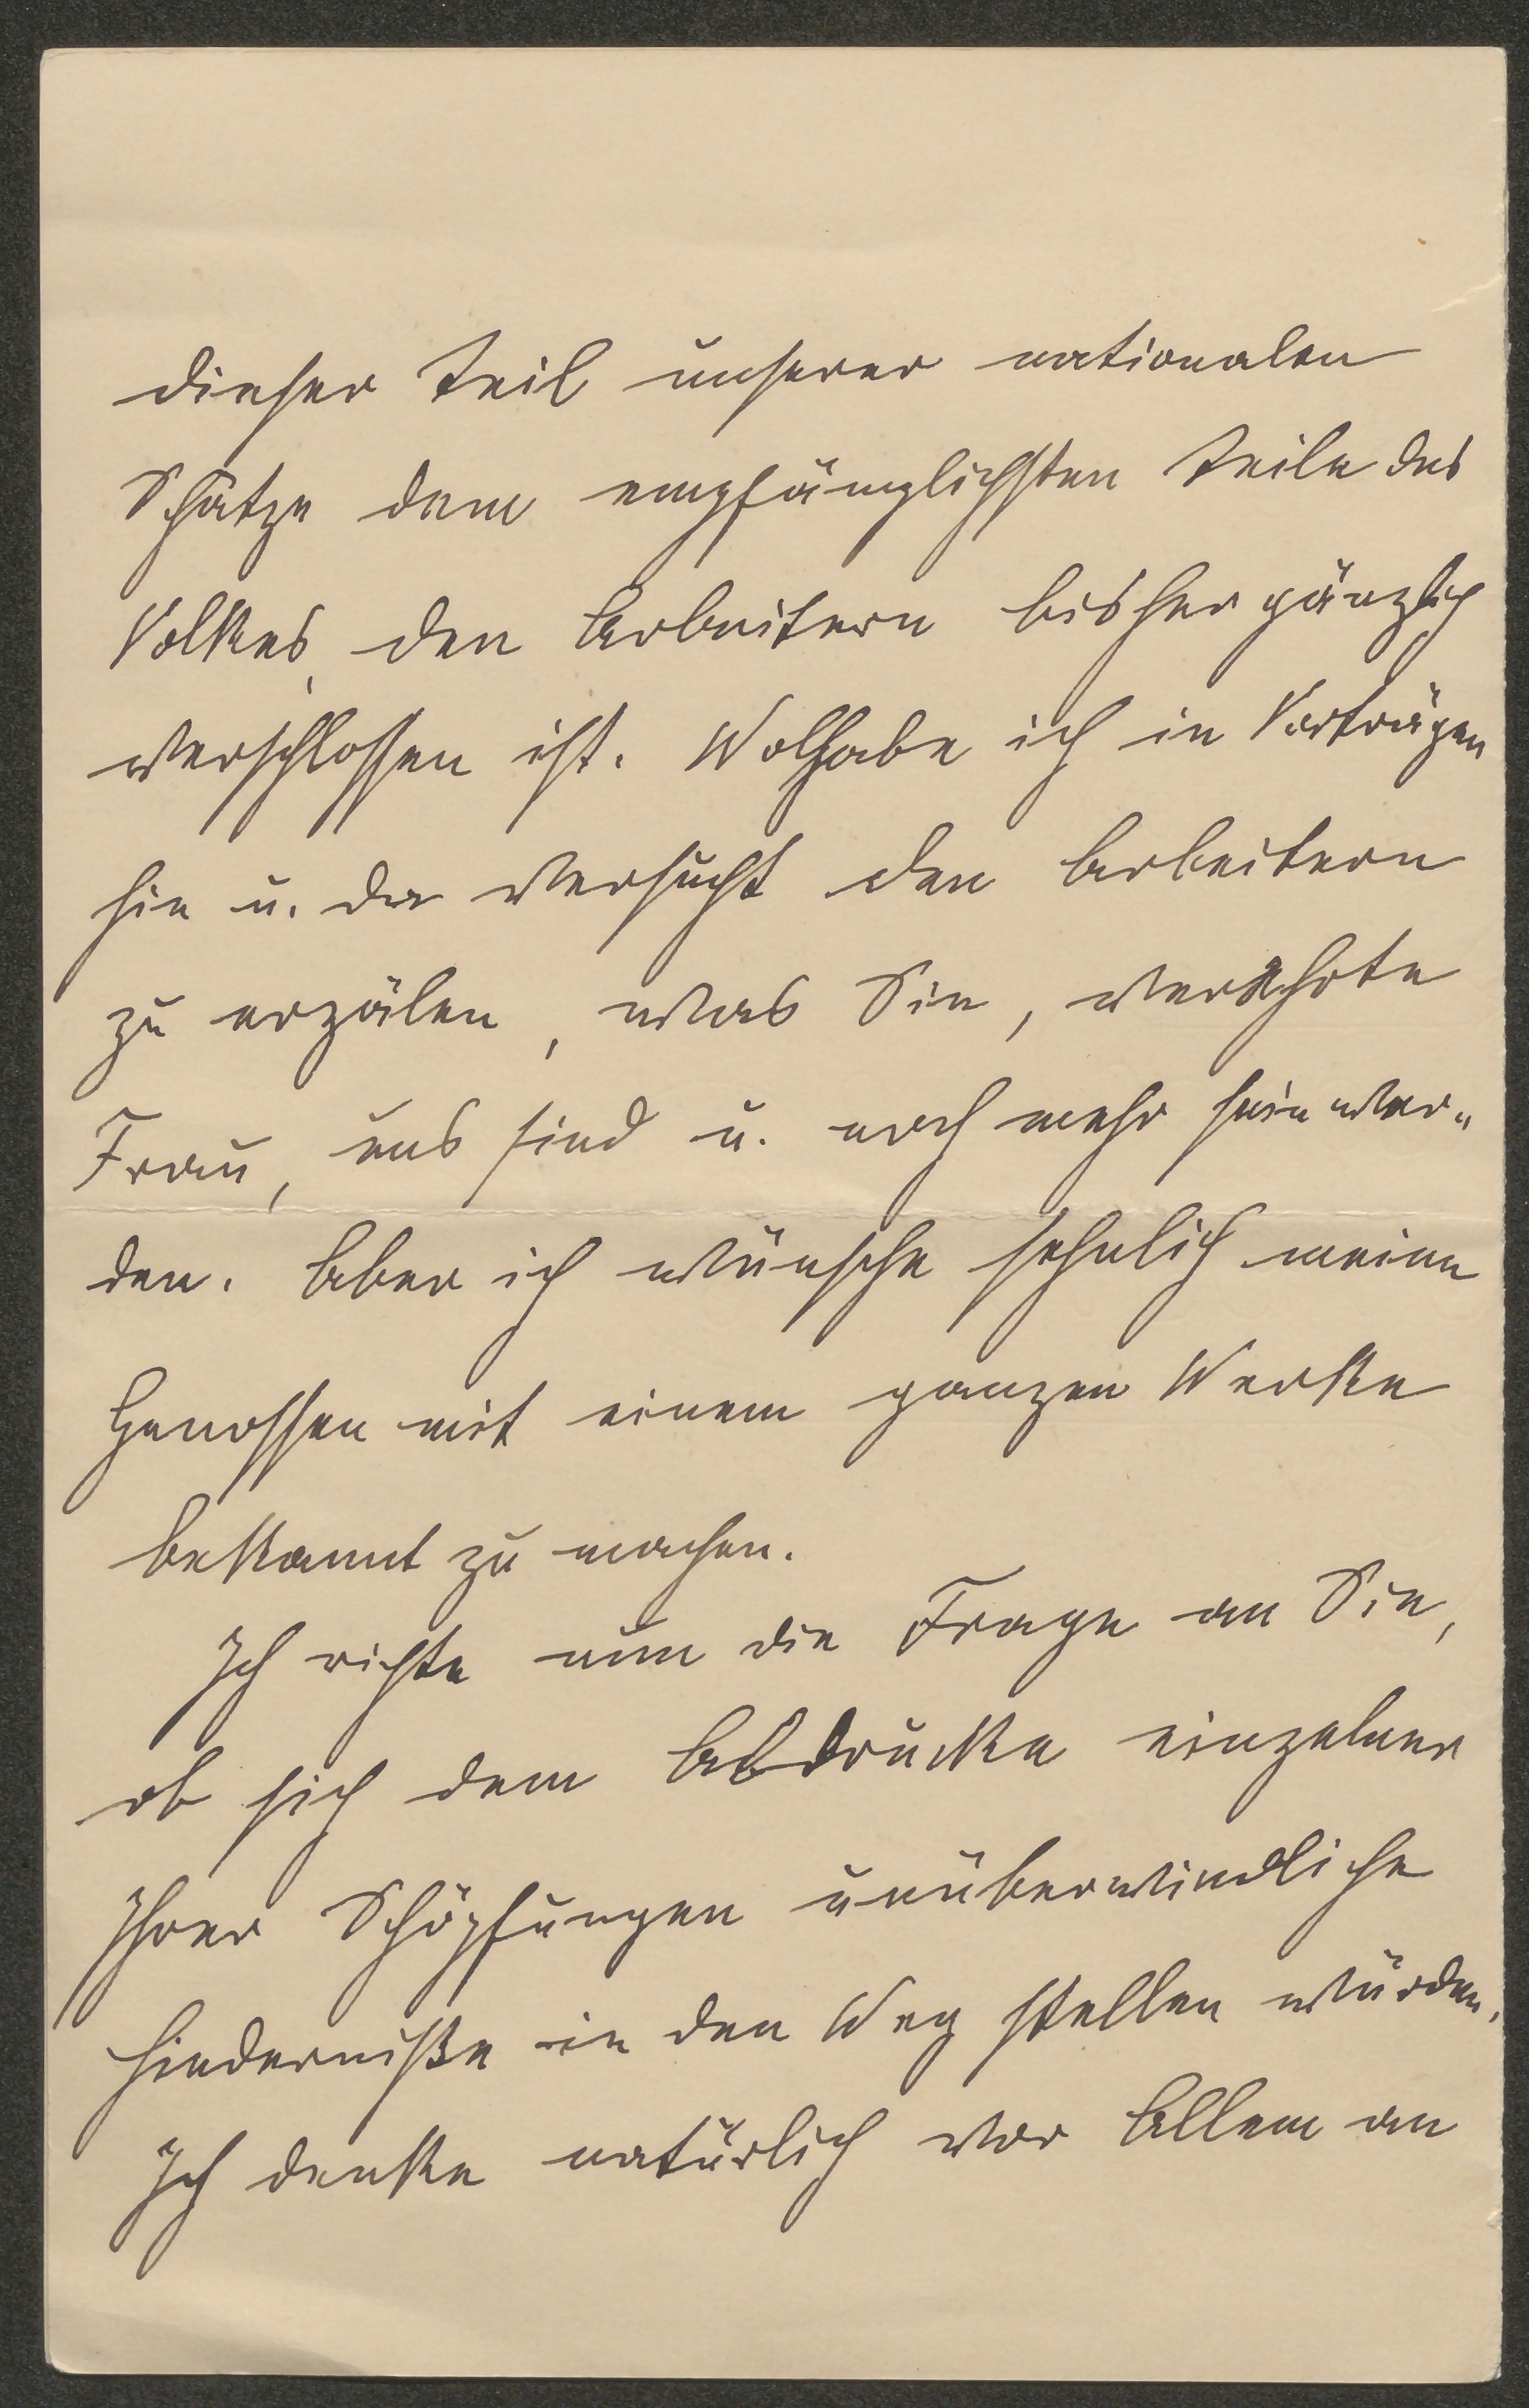 dieser Teil unserer nationalen
Schätze dem empfänglichsten Teile des
Volkes, den Arbeitern bisher gänzlich
verschlossen ist. Wol habe ich in Vorträgen
hie u. da versucht den Arbeitern
zu erzälen, was Sie, verehrte
Frau, uns sind u. noch mehr sein wer-
den. Aber ich wünsche sehnlich meine
Genossen mit einem ganzen Werke
bekannt zu machen.
Ich richte nun die Frage an Sie,
ob sich dem Abdrucke einzelner
Ihrer Schöpfungen unüberwindliche
Hinderniße in den Weg stellen würden.
Ich denke natürlich vor Allem an